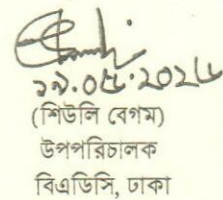 ১৯.০৫.২০২৬
(শিউলি বেগম)
উপপরিচালক
বিএডিসি, ঢাকা